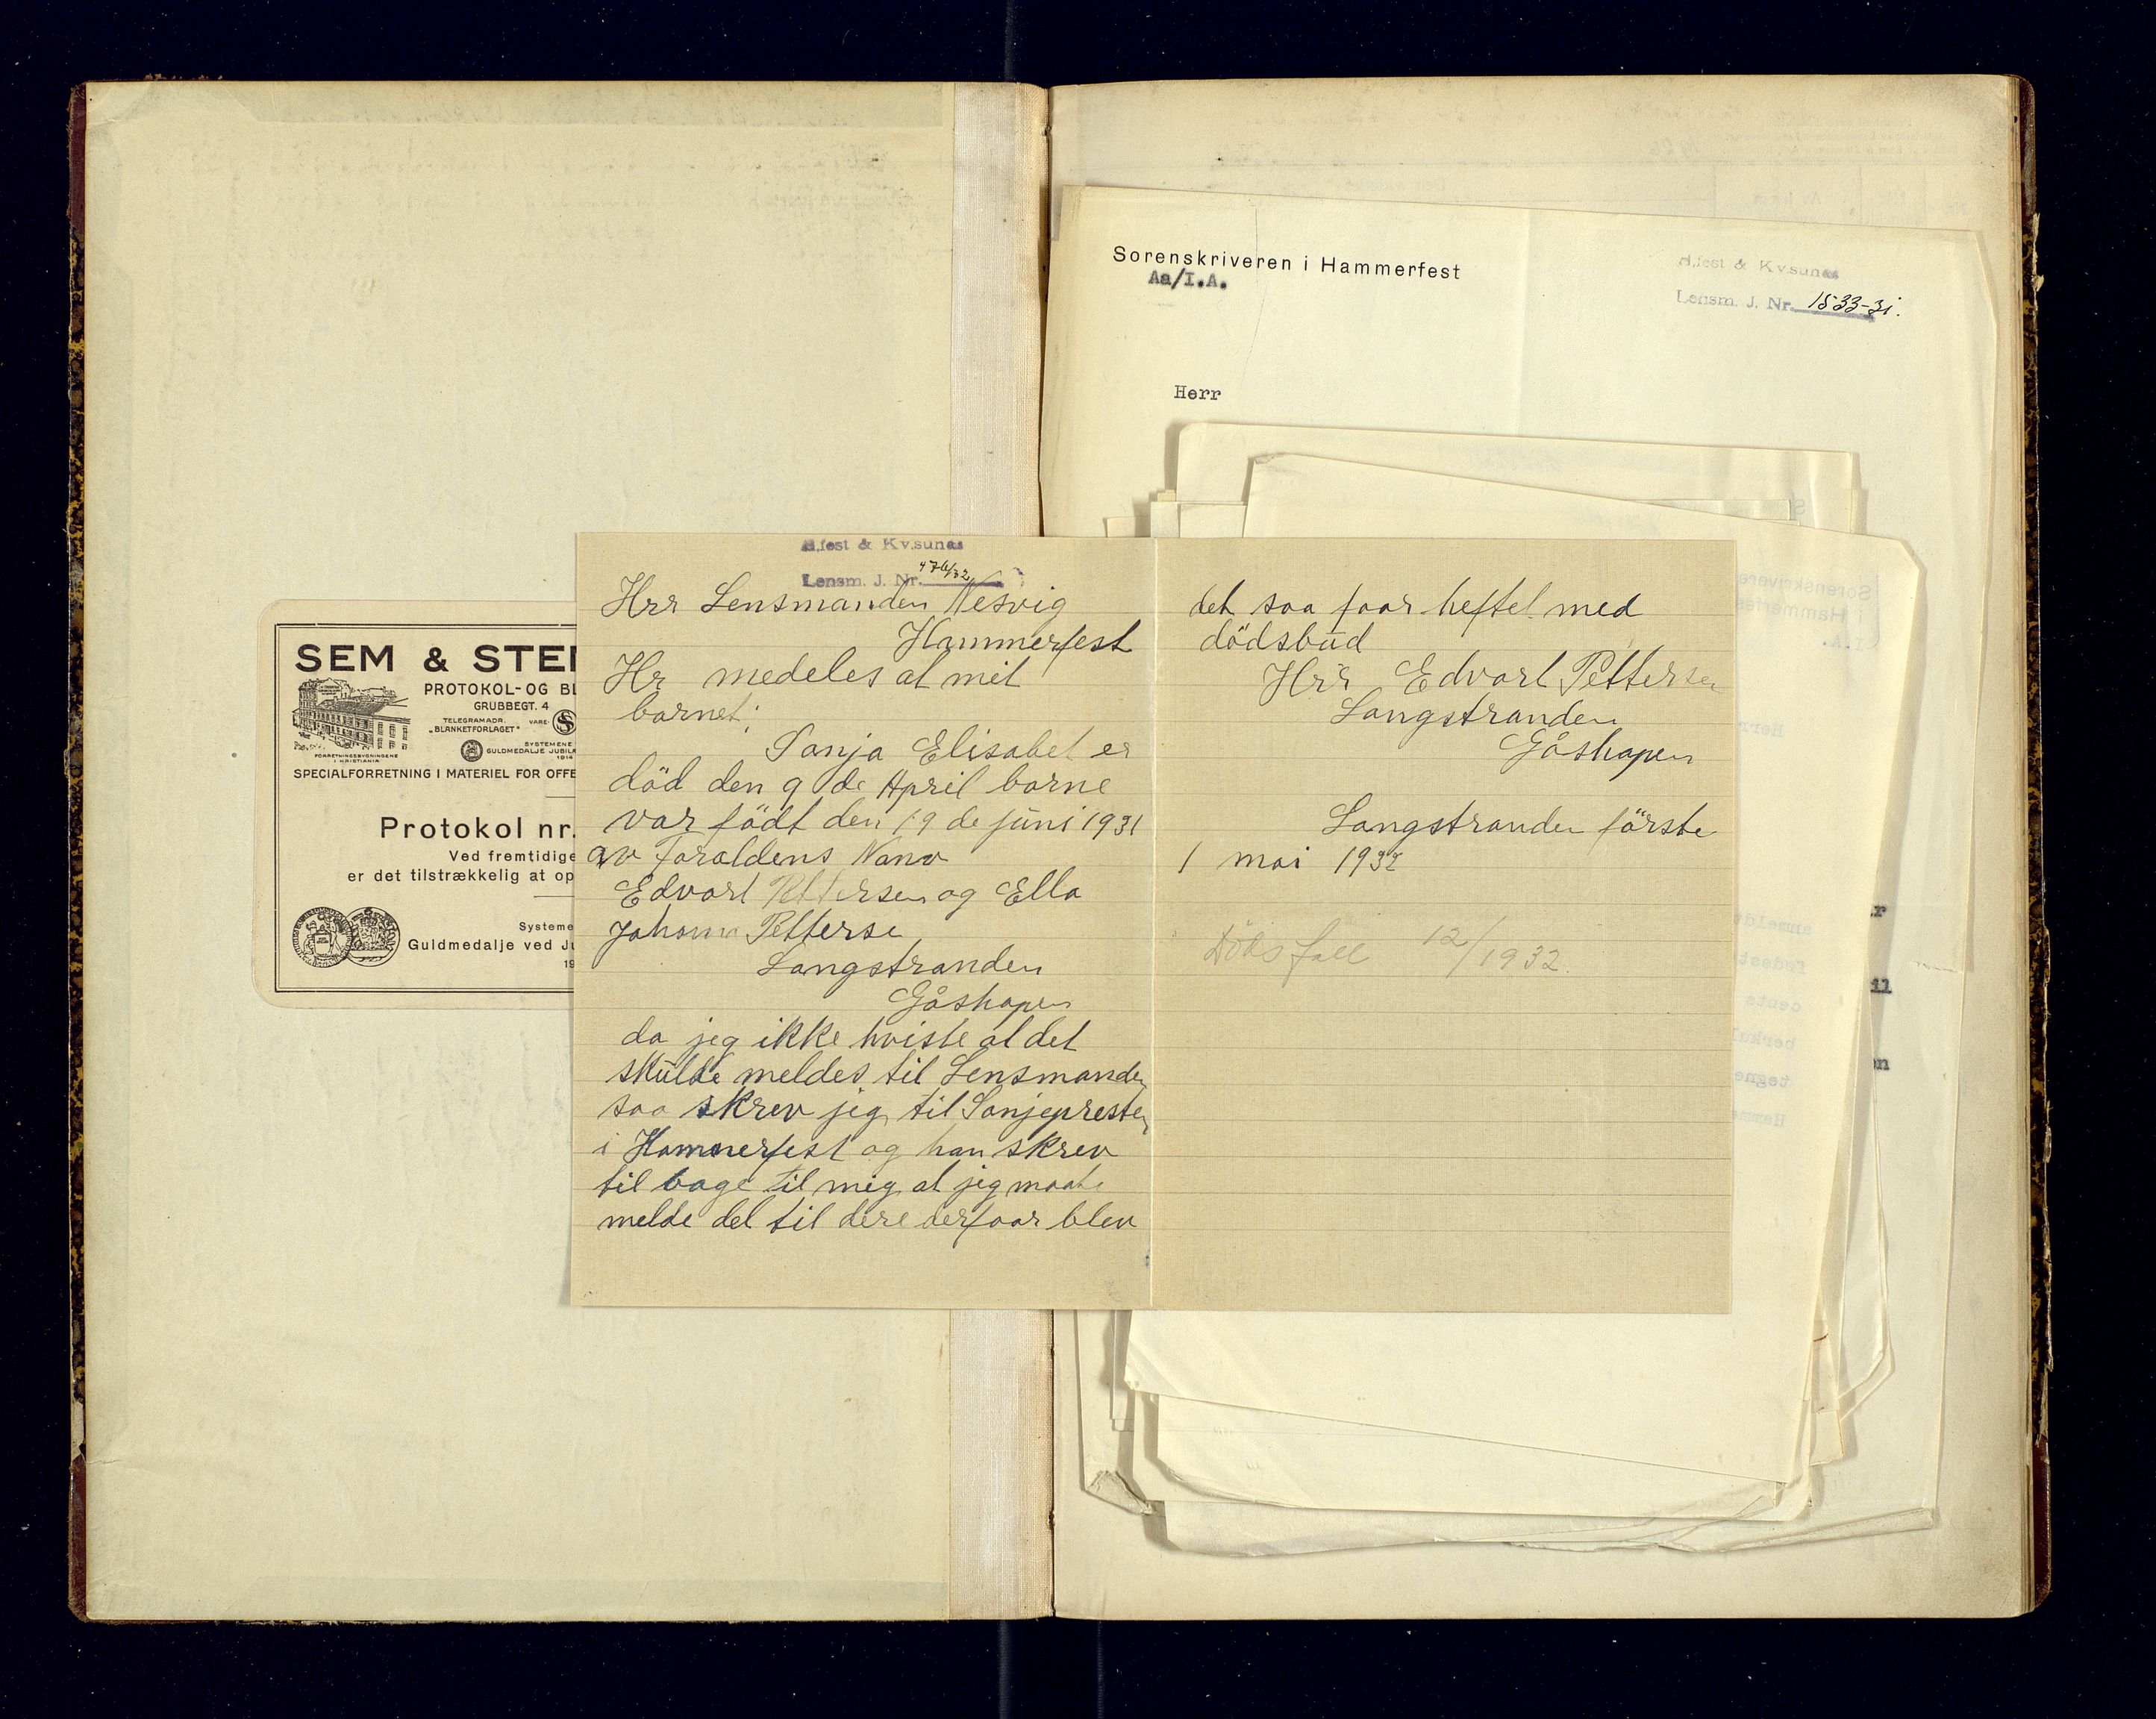 SEM & STE
PROTOKOL- OG BL
GRUBBEGT. 4
TELEGRAMADR.
„BLANKETFORLAGET"
VARE
SYSTEMENE
GULDMEDALJE JUBIL
1914
FORRETNINGSBYGNINGENE
I KRISTIANIA
SPECIALFORRETNING I MATERIEL FOR OFFE
Protokol nr.
Ved fremtidige
er det tilstrækkelig at op
Systeme
Guldmedalje ved Ju
19
H.fest & Kv.sunds
Lensm. J. Nr. 476/32
Hrr Lensmanden Nesvig
Hammerfest
Hr medeles at mit
barnet:
Sanja Elisabet er
död den 9 de April barne
var födt den 19 de juni 1931
av Foraldens Nanv
Edvart Pettersen og Ella
Johanna Petterse
Langstranden
Gåshopen
da jeg ikke hviste at det
skulde meldes til Lensmanden
saa skrev jeg til Sanjepresten
i Hammerfest og han skrev
til bage til mig at jeg maate
melde det til dere derfaar blev
det saa faar heftet med
dödsbud
Hrr Edvart Pettersen
Langstranden
Gåshopen
Langstranden förste
1 mai 1932
Dödsfall 12/1932.
Sorenskriveren i Hammerfest
Aa/I.A.
H.fest & Kv.sunds
Lensm. J. Nr. 1533-31.
Herr
r
il
en